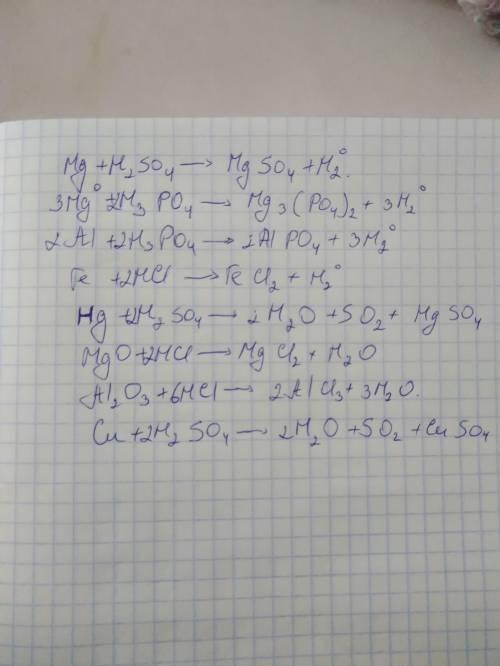 Mg + H₂SO₄ → MgSO₄ + H₂⁰.
3Mg⁰ + 2H₃PO₄ → Mg₃(PO₄)₂ + 3H₂⁰
2Al + 2H₃PO₄ → 2AlPO₄ + 3H₂⁰
Fe + 2HCl → FeCl₂ + H₂⁰
Hg + 2H₂SO₄ → 2H₂O + SO₂ + HgSO₄
MgO + 2HCl → MgCl₂ + H₂O
Al₂O₃ + 6HCl → 2AlCl₃ + 3H₂O.
Cu + 2H₂SO₄ → 2H₂O + SO₂ + CuSO₄